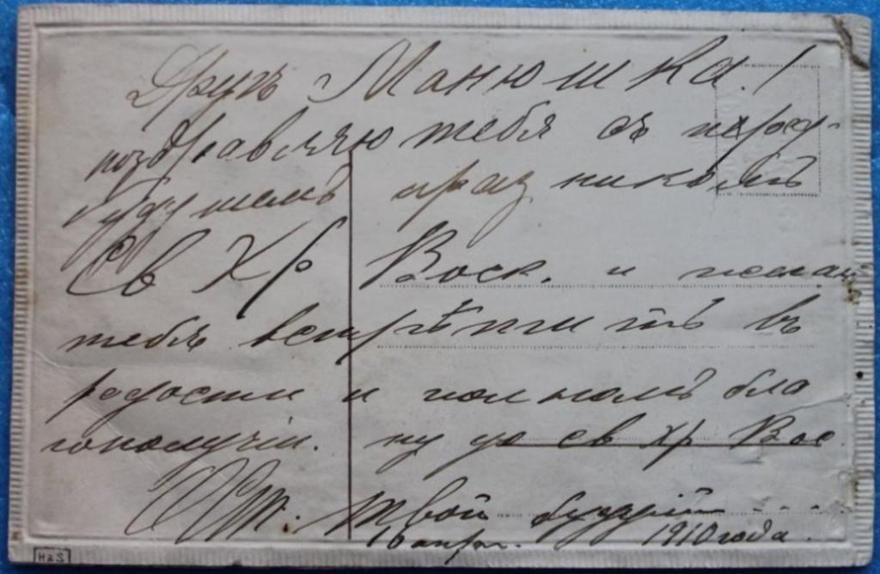 Другъ Манюшка!
поздравляю тебя съ пред-
будущемъ праздникомъ
Св Хр Воск. и желаю
тебя встрѣтить въ
радости и полномъ бла
гополучіи. ну до св Хр Вос
твой будущій ...
10 апр. 1910 года.
H&S